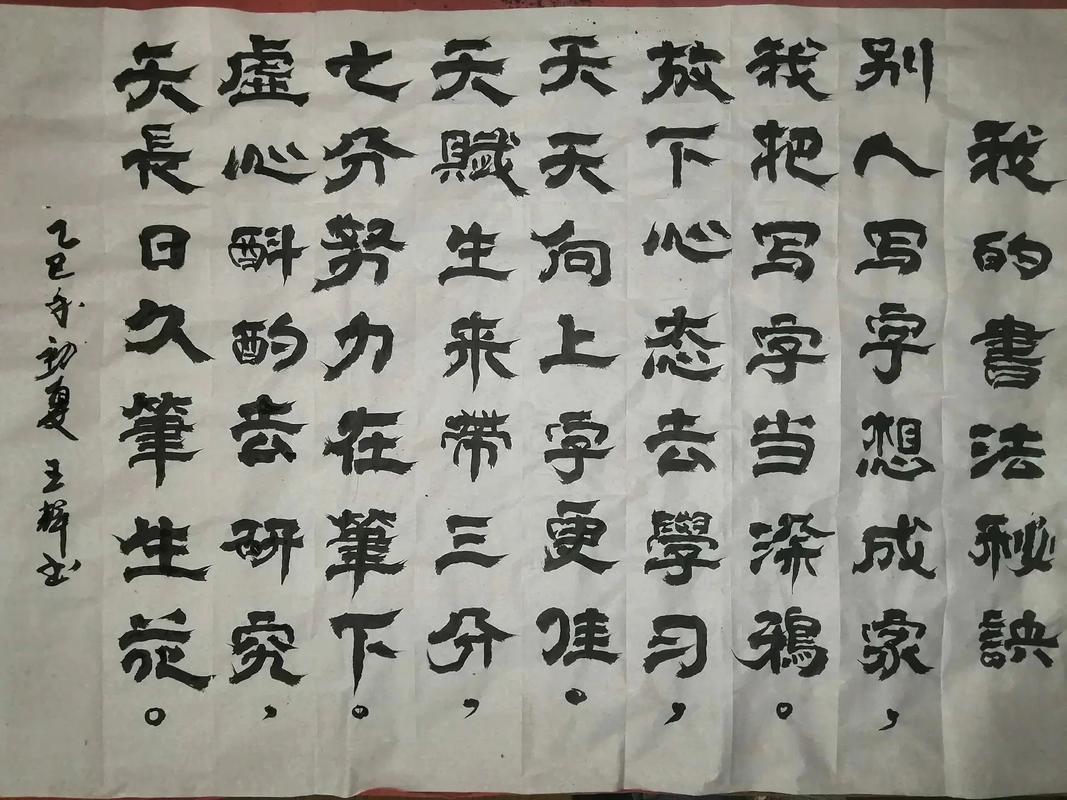 我的書法秘訣
别人写字想成家，
我把写字当涂鴉。
放下心态去學习，
天天向上字更佳。
天賦生来帶三分，
七分努力在筆下。
虛心斟酌去研究，
天長日久筆生花。
乙巳年初夏 王辉书